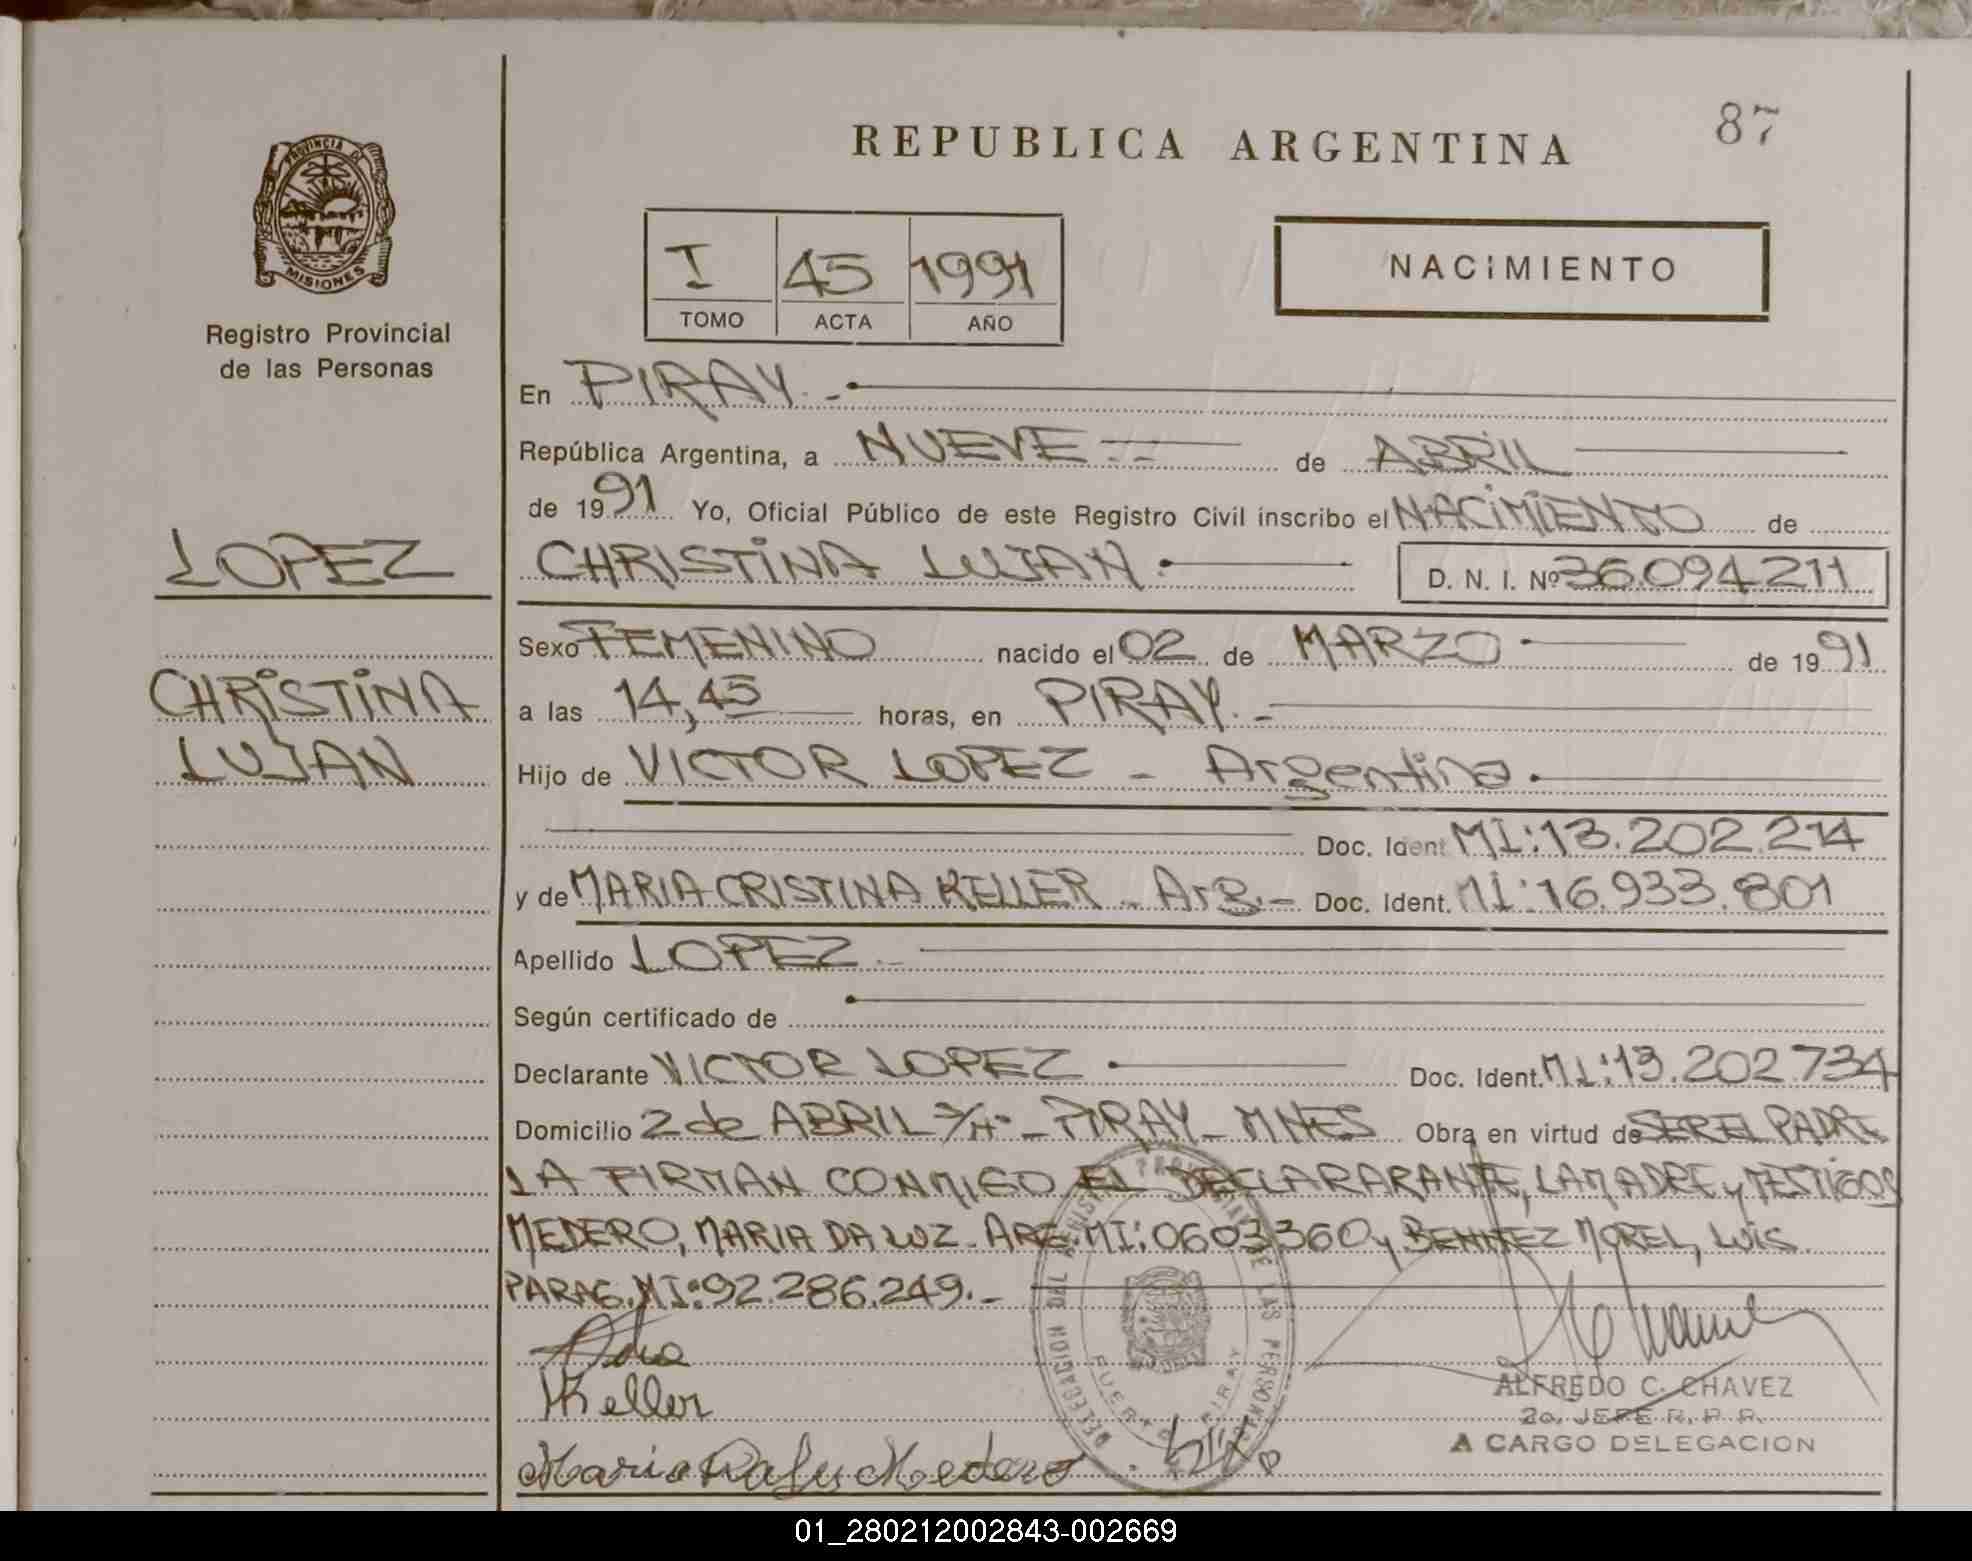 REPUBLICA ARGENTINA
87
PROVINCIA DE
MISIONES
Registro Provincial
de las Personas
I 45 1991
TOMO ACTA AÑO
NACIMIENTO
En PIRAY.-
República Argentina, a NUEVE-- de ABRIL
de 1991 Yo, Oficial Público de este Registro Civil inscribo el NACIMIENTO de
LOPEZ
CHRISTINA LUJAN.- D. N. I. Nº 36.094.211
Sexo FEMENINO nacido el 02 de MARZO - de 1991
CHRISTINA
a las 14,45 horas, en PIRAY.-
LUJAN
Hijo de VICTOR LOPEZ - Argentina.
Doc. Ident MI:13.202.214
y de MARIA CRISTINA KELLER - Arg.- Doc. Ident. MI:16.933.801
Apellido LOPEZ.-
Según certificado de
Declarante VICTOR LOPEZ Doc. Ident. MI:13.202734
Domicilio 2 de ABRIL S/Nº - PIRAY - MNES Obra en virtud de SER EL PADRE
LA FIRMAN CONMIGO EL DECLARARANTE, LA MADRE y TESTIGOS
MEDERO, MARIA DA LUZ - ARG. MI: 0603360 y BENITEZ MOREL, LUIS
PARAG. MI: 92.286.249.-
Keller
ALFREDO C. CHAVEZ
2o. JEFE R. P. P.
A CARGO DELEGACION
Medero
DELEGACION DEL REGISTRO PROVINCIAL DE LAS PERSONAS
PUERTO PIRAY
01_280212002843-002669